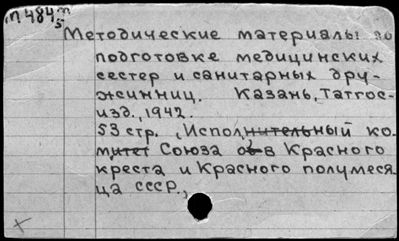 П484 m/5
Методические материалы по
подготовке медицинских
сестер и санитарных дру-
жинниц. Казань, Татгос-
изд., 1942.
53 стр., Исполнительный ко-
митет Союза об-в Красного
креста и Красного полумеся
ца СССР.,